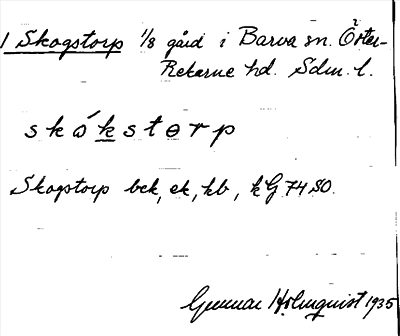 1 Skogstorp 1/8 gård i Barva sn. Öster-
Rekarne hd. Sdm. l.
skó̀kstɵrp
Skogstorp bek, ek, kb, kG 74 SO.
Gunnar Holmquist 1935